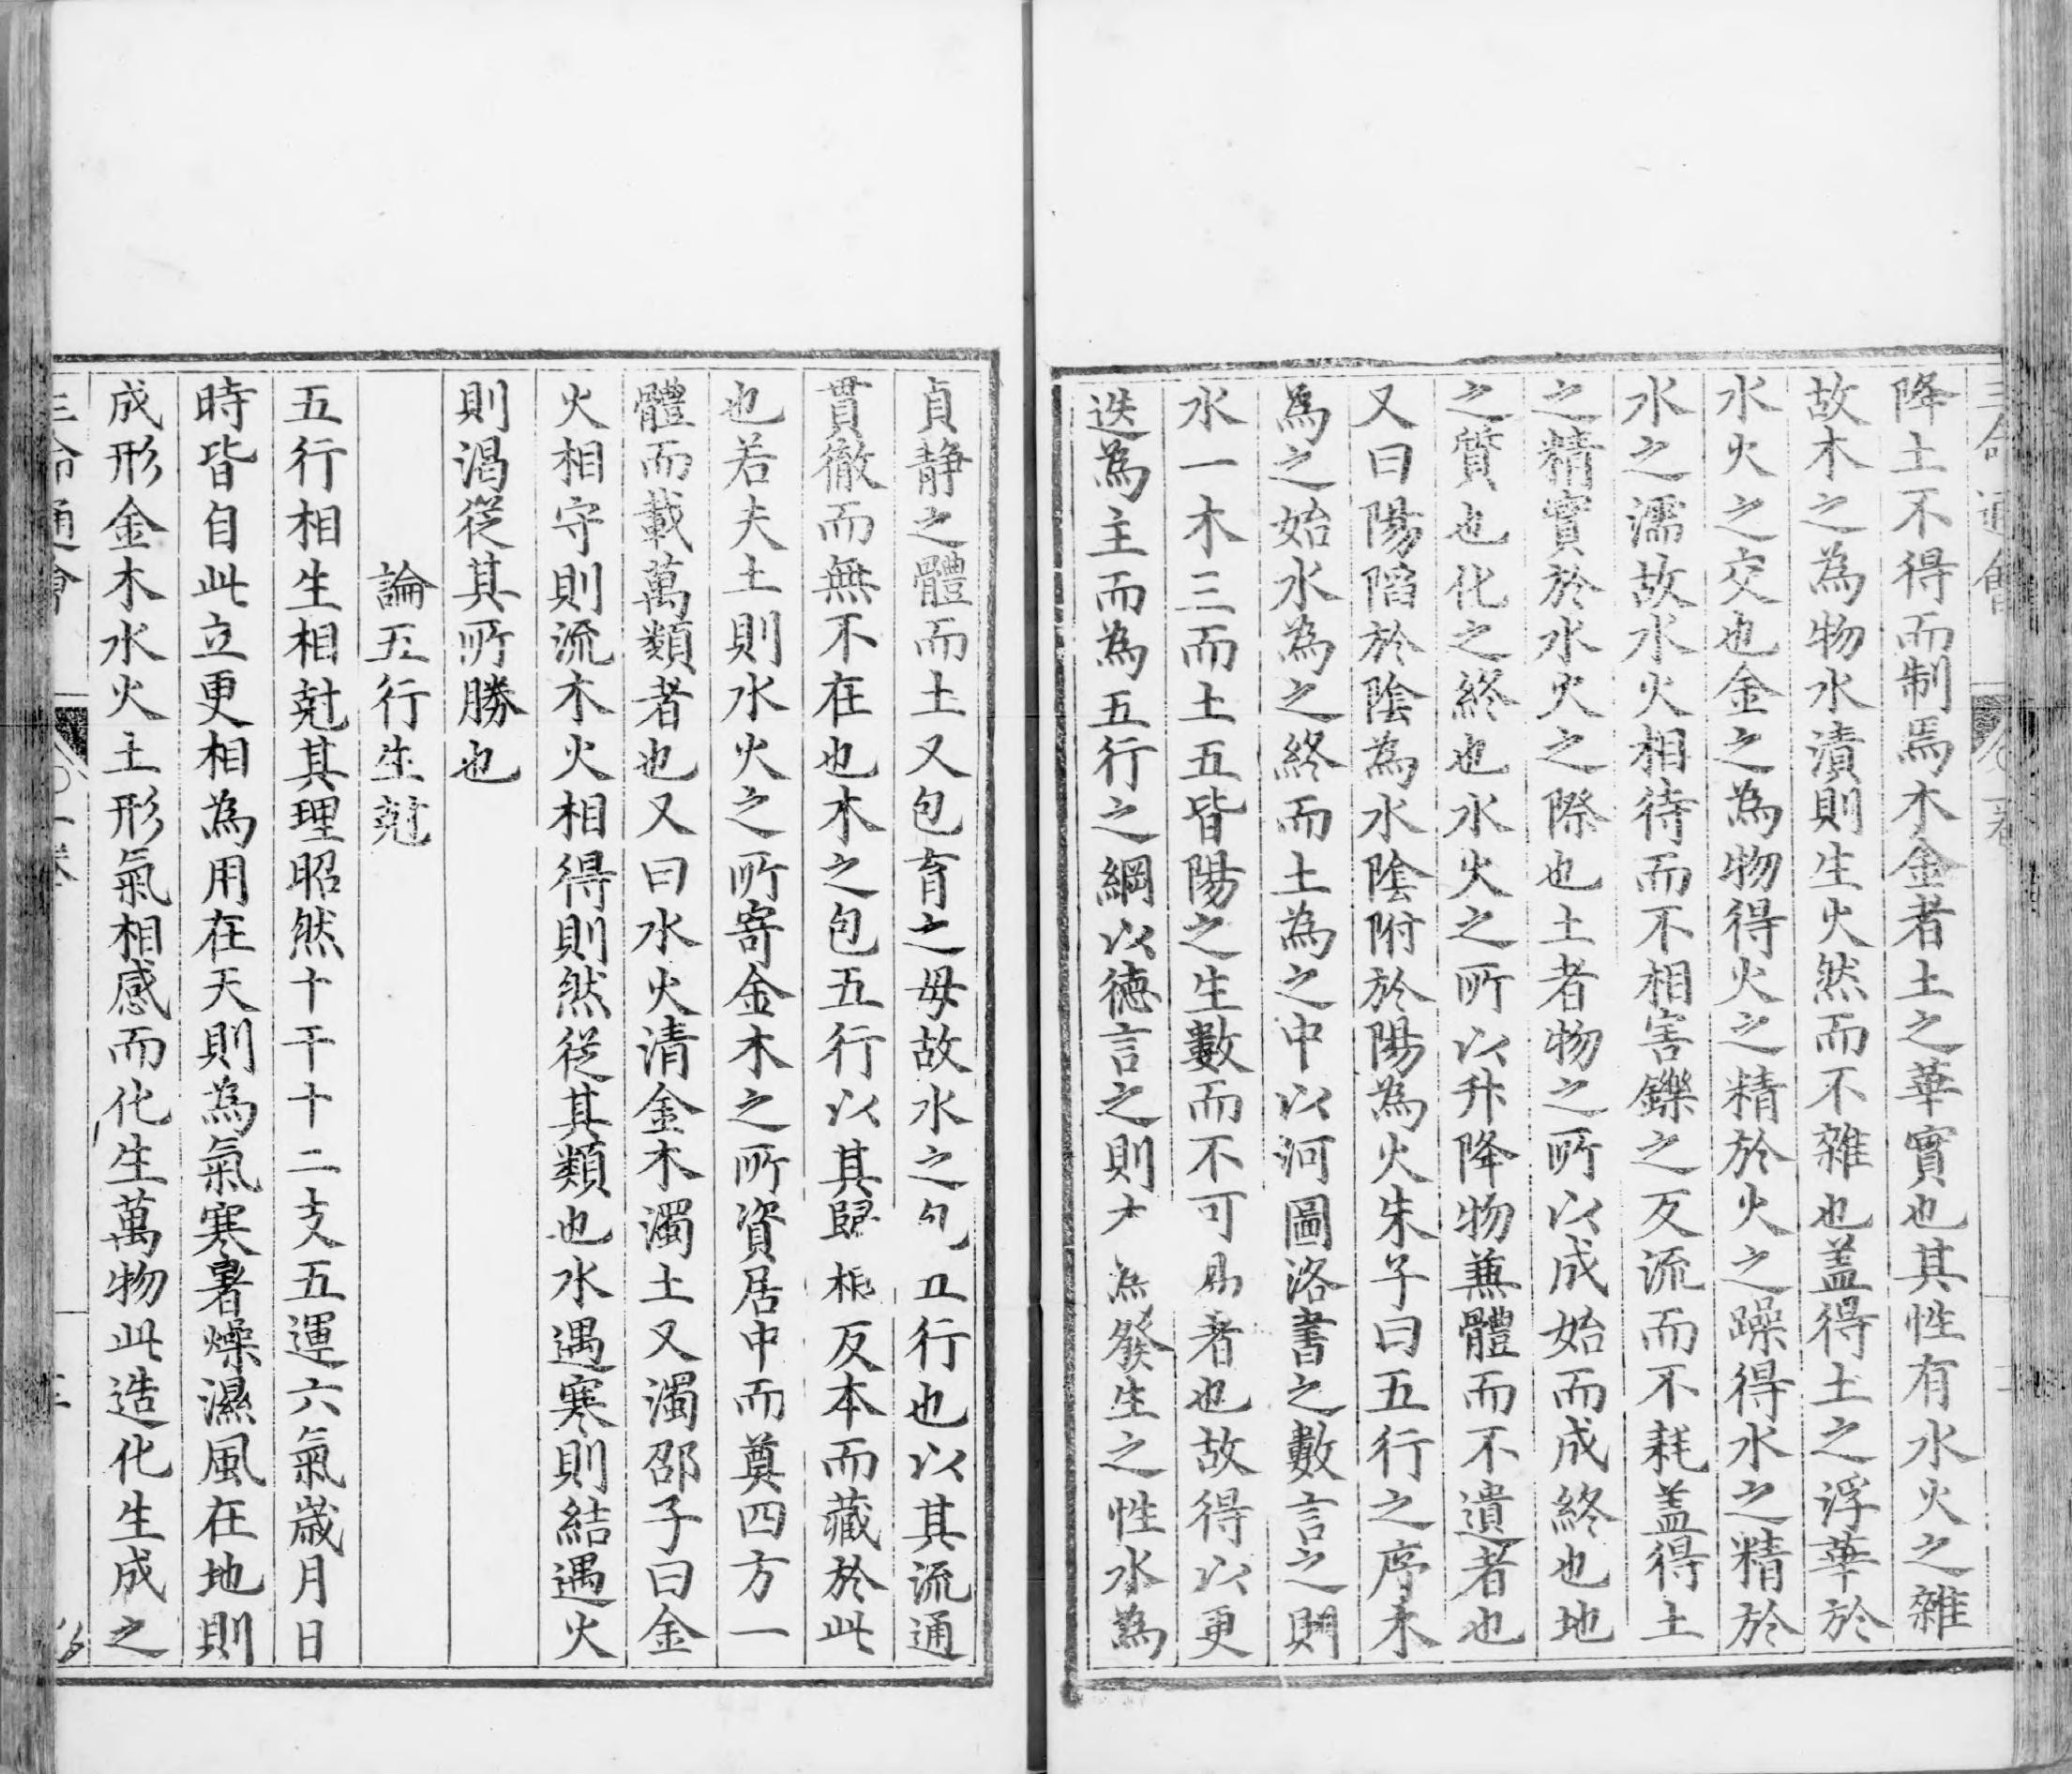 三命通會 卷一
降土不得而制焉木金者土之華實也其性有水火之雜
故木之為物水漬則生火然而不雜也盖得土之浮華於
水火之交也金之為物得火之精於火之躁得水之精於
水之濡故水火相待而不相害鑠之反流而不耗盖得土
之精實於水火之際也土者物之所以成始而成終也地
之質也化之終也水火之所以升降物兼體而不遺者也
又曰陽陷於陰為水陰附於陽為火朱子曰五行之序木
為之始水為之終而土為之中以河圖洛書之數言之則
水一木三而土五皆陽之生數而不可易者也故得以更
迭為主而為五行之綱以德言之則木為發生之性水為
貞静之體而土又包育之毋故水之包五行也以其流通
貫徹而無不在也木之包五行以其歸根反本而藏於此
也若夫土則水火之所寄金木之所資居中而奠四方一
體而載萬類者也又曰水火清金木濁土又濁邵子曰金
火相守則流木火相得則然從其類也水遇寒則結遇火
則渴從其所勝也
論五行生尅
五行相生相尅其理昭然十干十二支五運六氣歲月日
時皆自此立更相為用在天則為氣寒暑燥濕風在地則
成形金木水火土形氣相感而化生萬物此造化生成之
三命通會 卷一